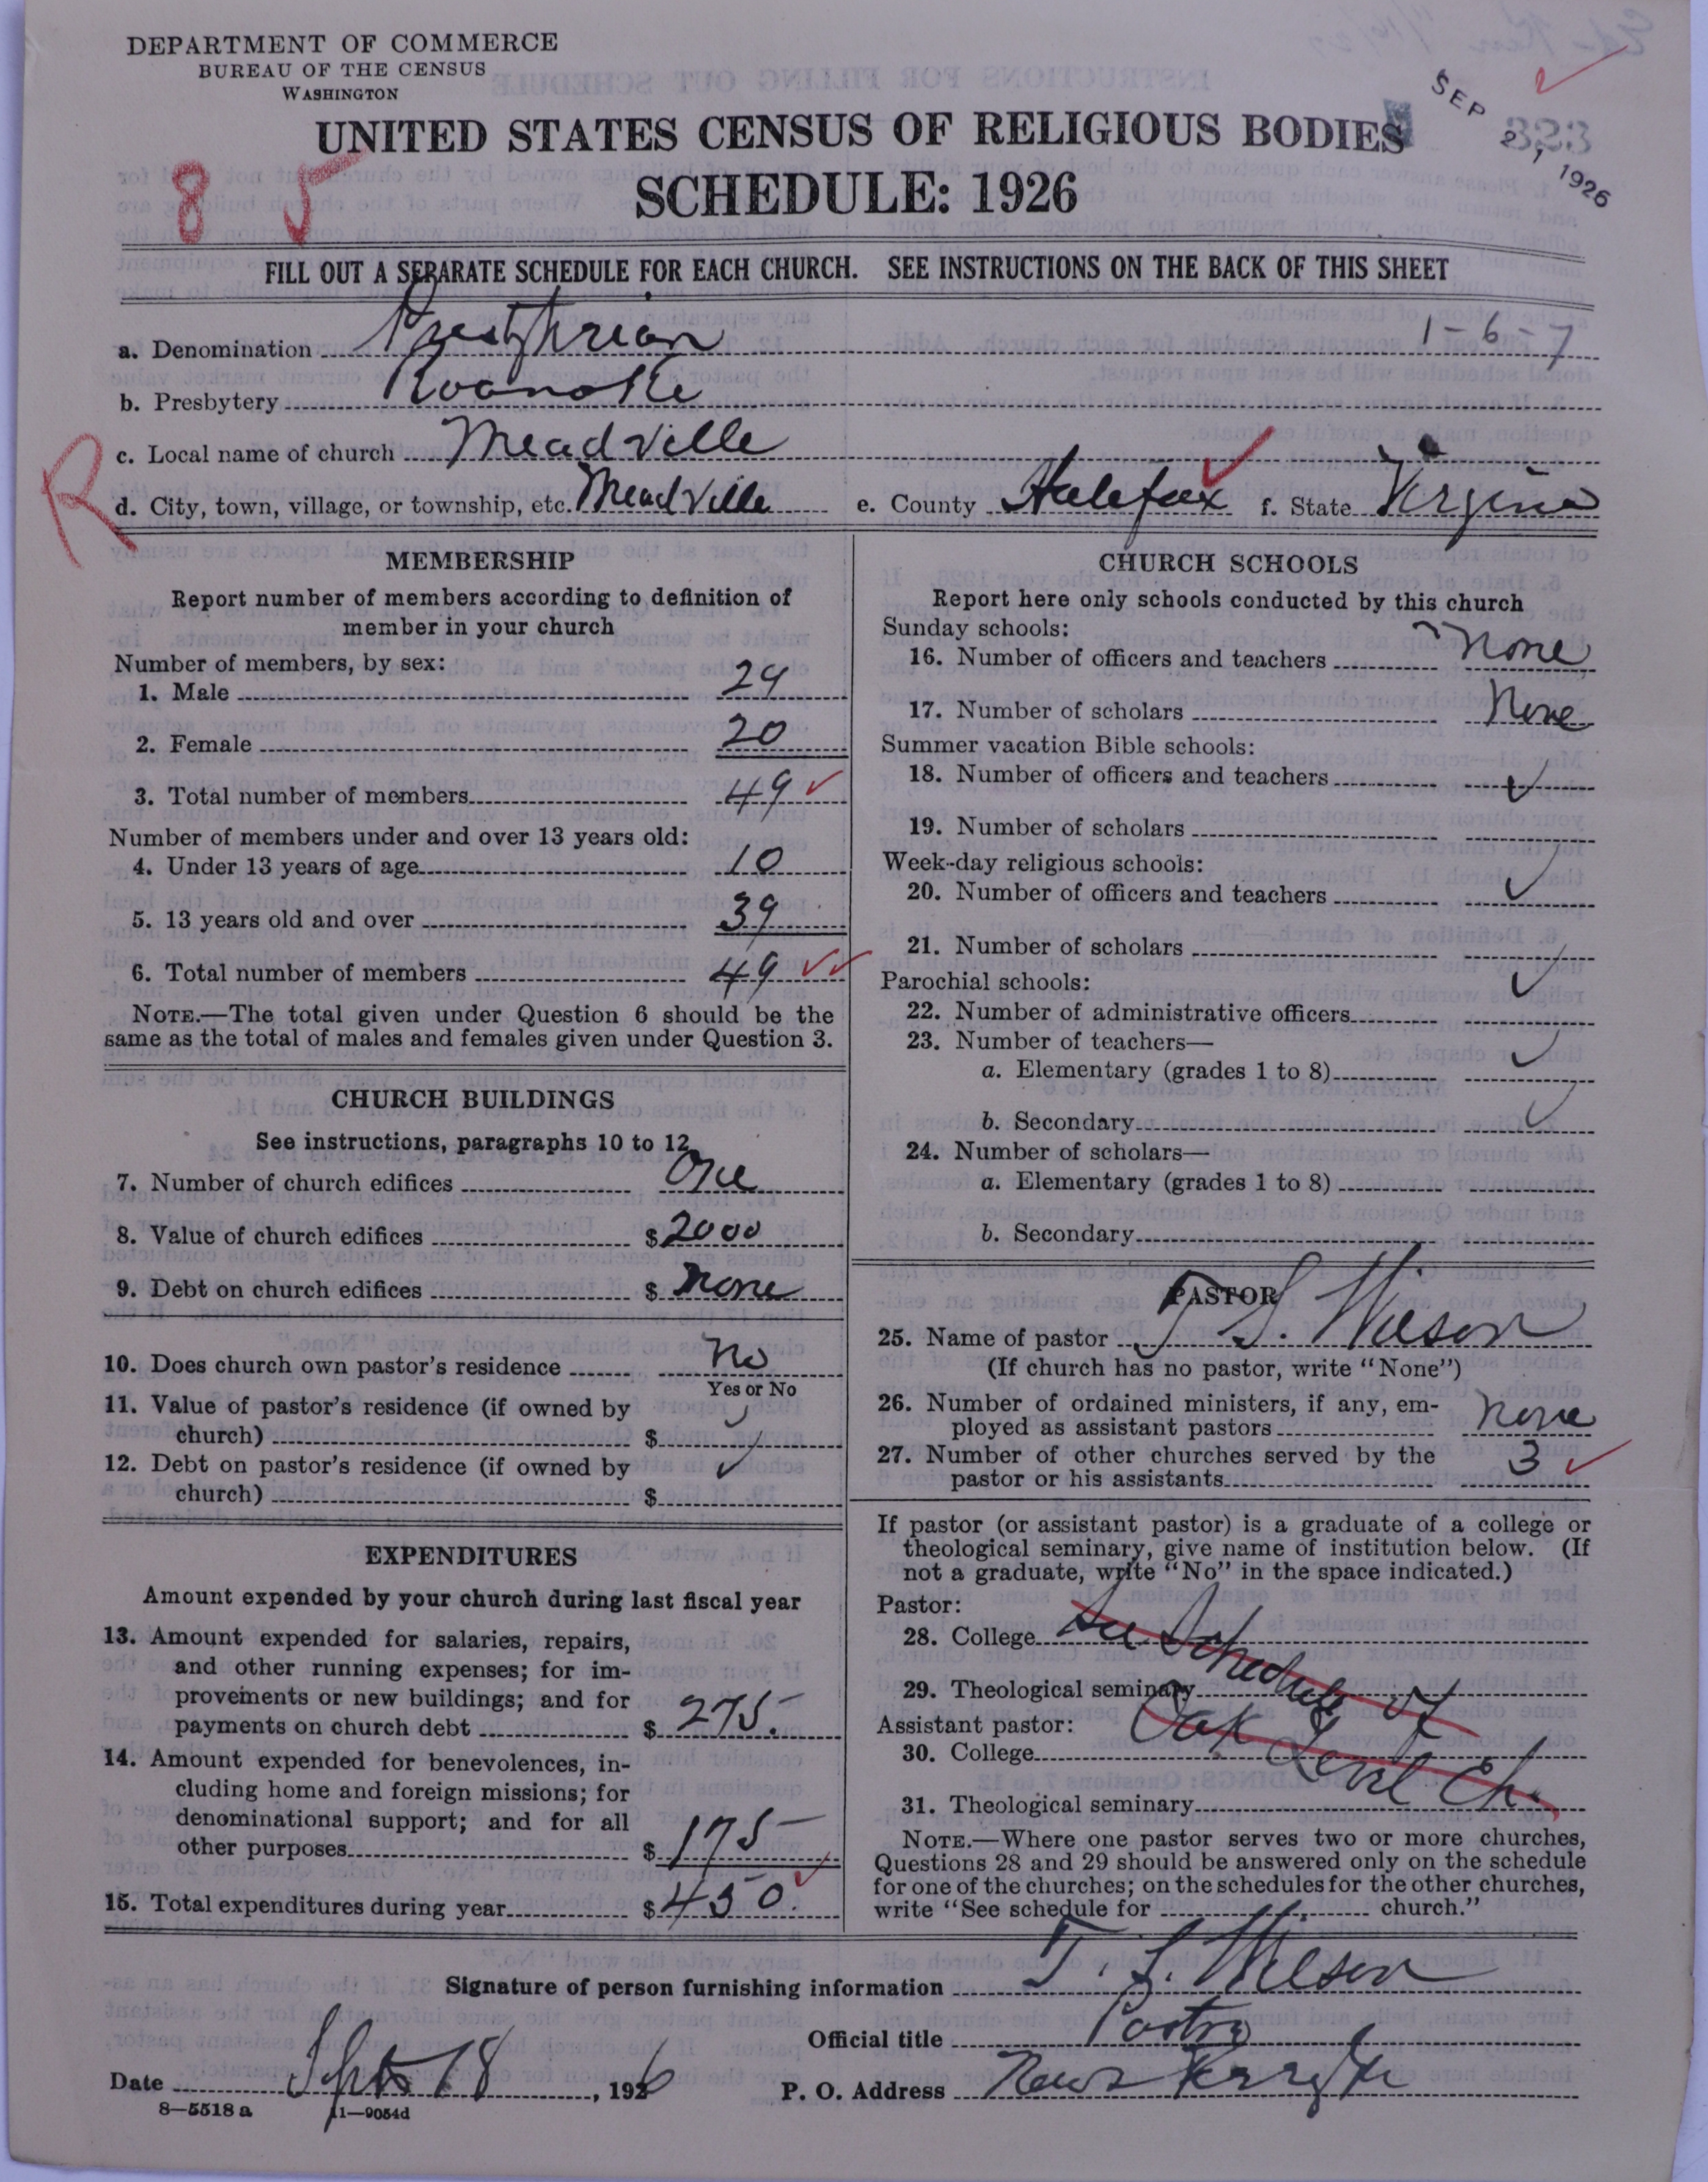 DEPARTMENT OF COMMERCE
BUREAU OF THE CENSUS
WASHINGTON
SEP 21 1926
323
UNITED STATES CENSUS OF RELIGIOUS BODIES
8 5
SCHEDULE: 1926
FILL OUT A SEPARATE SCHEDULE FOR EACH CHURCH. SEE INSTRUCTIONS ON THE BACK OF THIS SHEET
a. Denomination Presbyterian 1-6-7
b. Presbytery Roanoke
c. Local name of church Meadville
R
d. City, town, village, or township, etc. Meadville e. County Halifax f. State Virginia
MEMBERSHIP
Report number of members according to definition of
member in your church
Number of members, by sex:
1. Male 29
2. Female 20
3. Total number of members 49
Number of members under and over 13 years old:
4. Under 13 years of age 10
5. 13 years old and over 39
6. Total number of members 49
NOTE.—The total given under Question 6 should be the
same as the total of males and females given under Question 3.
CHURCH BUILDINGS
See instructions, paragraphs 10 to 12
7. Number of church edifices One
8. Value of church edifices $ 2000
9. Debt on church edifices $ None
10. Does church own pastor's residence No
Yes or No
11. Value of pastor's residence (if owned by
church) $
12. Debt on pastor's residence (if owned by
church) $
EXPENDITURES
Amount expended by your church during last fiscal year
13. Amount expended for salaries, repairs,
and other running expenses; for im-
provements or new buildings; and for
payments on church debt $ 275.
14. Amount expended for benevolences, in-
cluding home and foreign missions; for
denominational support; and for all
other purposes $ 175
15. Total expenditures during year $ 450.
CHURCH SCHOOLS
Report here only schools conducted by this church
Sunday schools:
16. Number of officers and teachers None
17. Number of scholars None
Summer vacation Bible schools:
18. Number of officers and teachers
19. Number of scholars
Week-day religious schools:
20. Number of officers and teachers
21. Number of scholars
Parochial schools:
22. Number of administrative officers
23. Number of teachers—
a. Elementary (grades 1 to 8)
b. Secondary
24. Number of scholars—
a. Elementary (grades 1 to 8)
b. Secondary
PASTOR
25. Name of pastor T S. Wilson
(If church has no pastor, write "None")
26. Number of ordained ministers, if any, em-
ployed as assistant pastors None
27. Number of other churches served by the
pastor or his assistants 3
If pastor (or assistant pastor) is a graduate of a college or
theological seminary, give name of institution below. (If
not a graduate, write "No" in the space indicated.)
Pastor:
28. College See Schedule of
29. Theological seminary
Assistant pastor: Oak Level Ch.
30. College
31. Theological seminary
NOTE.—Where one pastor serves two or more churches,
Questions 28 and 29 should be answered only on the schedule
for one of the churches; on the schedules for the other churches,
write "See schedule for church."
Signature of person furnishing information T. S. Wilson
Official title Pastor
Date Sept 18, 1926 P. O. Address News Ferry Va
8—5518 a 11—9054d